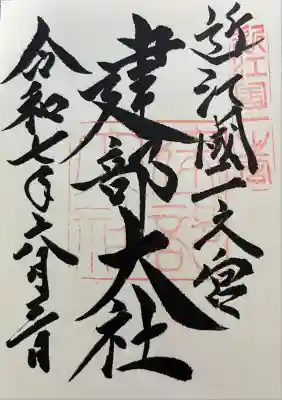 近江國一之宮
建部大社
令和七年六月三日